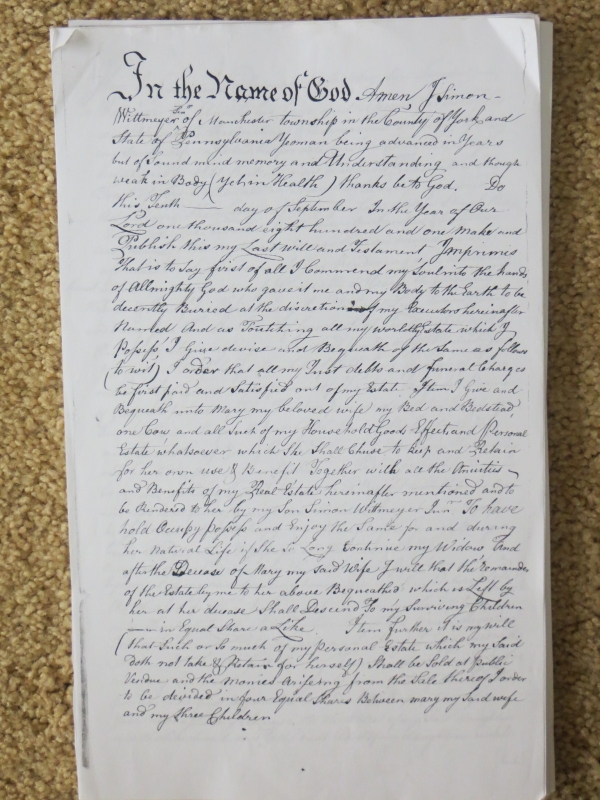 In the Name of God Amen I Simon
Wittmeyer Senr of Manchester township in the County of York and
State of Pennsylvania Yeoman being advanced in Years
but of Sound mind memory and Understanding and though
weak in Body (yet in Health) thanks be to God. Do
this Tenth day of September In the Year of Our
Lord one thousand eight hundred and one Make and
Publish this my Last Will and Testament Imprimes
That is to Say first of all I Commend my Soul into the hands
of Allmighty God who gave it me and my Body to the Earth to be
decently Burred at the discretion of my Executors hereinafter
Named And as Toutching all my worldly Estate which I
Possess I Give devise and Bequeath of the Same as follows
(to wit) I order that all my Just debts and funeral Charges
be first paid and Satisfied out of my Estate. Item I Give and
Bequeath unto Mary my beloved wife my Bed and Bedstead
one Cow and all Such of my Household Goods Effects and Personal
Estate whatsoever which She Shall Chuse to keep and Retain
for her own use & Benefit Together with all the
and Benefits of my Real Estate hereinafter mentioned and to
be Rendered to her by my Son Simon Witmeyer Junr To have
hold Occupy Possess and Enjoy the Same for and during
her Natural Life if She So Long Continue my Widow And
after the Decease of Mary my Said Wife I will that the remainder
of the Estate by me to her above Bequeathd which is Left by
her at her decease Shall Descend To my Surviving Children
in Equal Share a Like. Item further it is my will
(that Such or So much of my Personal Estate which my Said
doth not take & Retain for herself) Shall be Sold at Public
Vendue and the monies Arifeing from the Sale thereof I order
to be divided in four Equal Shares Between mary my Said wife
and my three Children